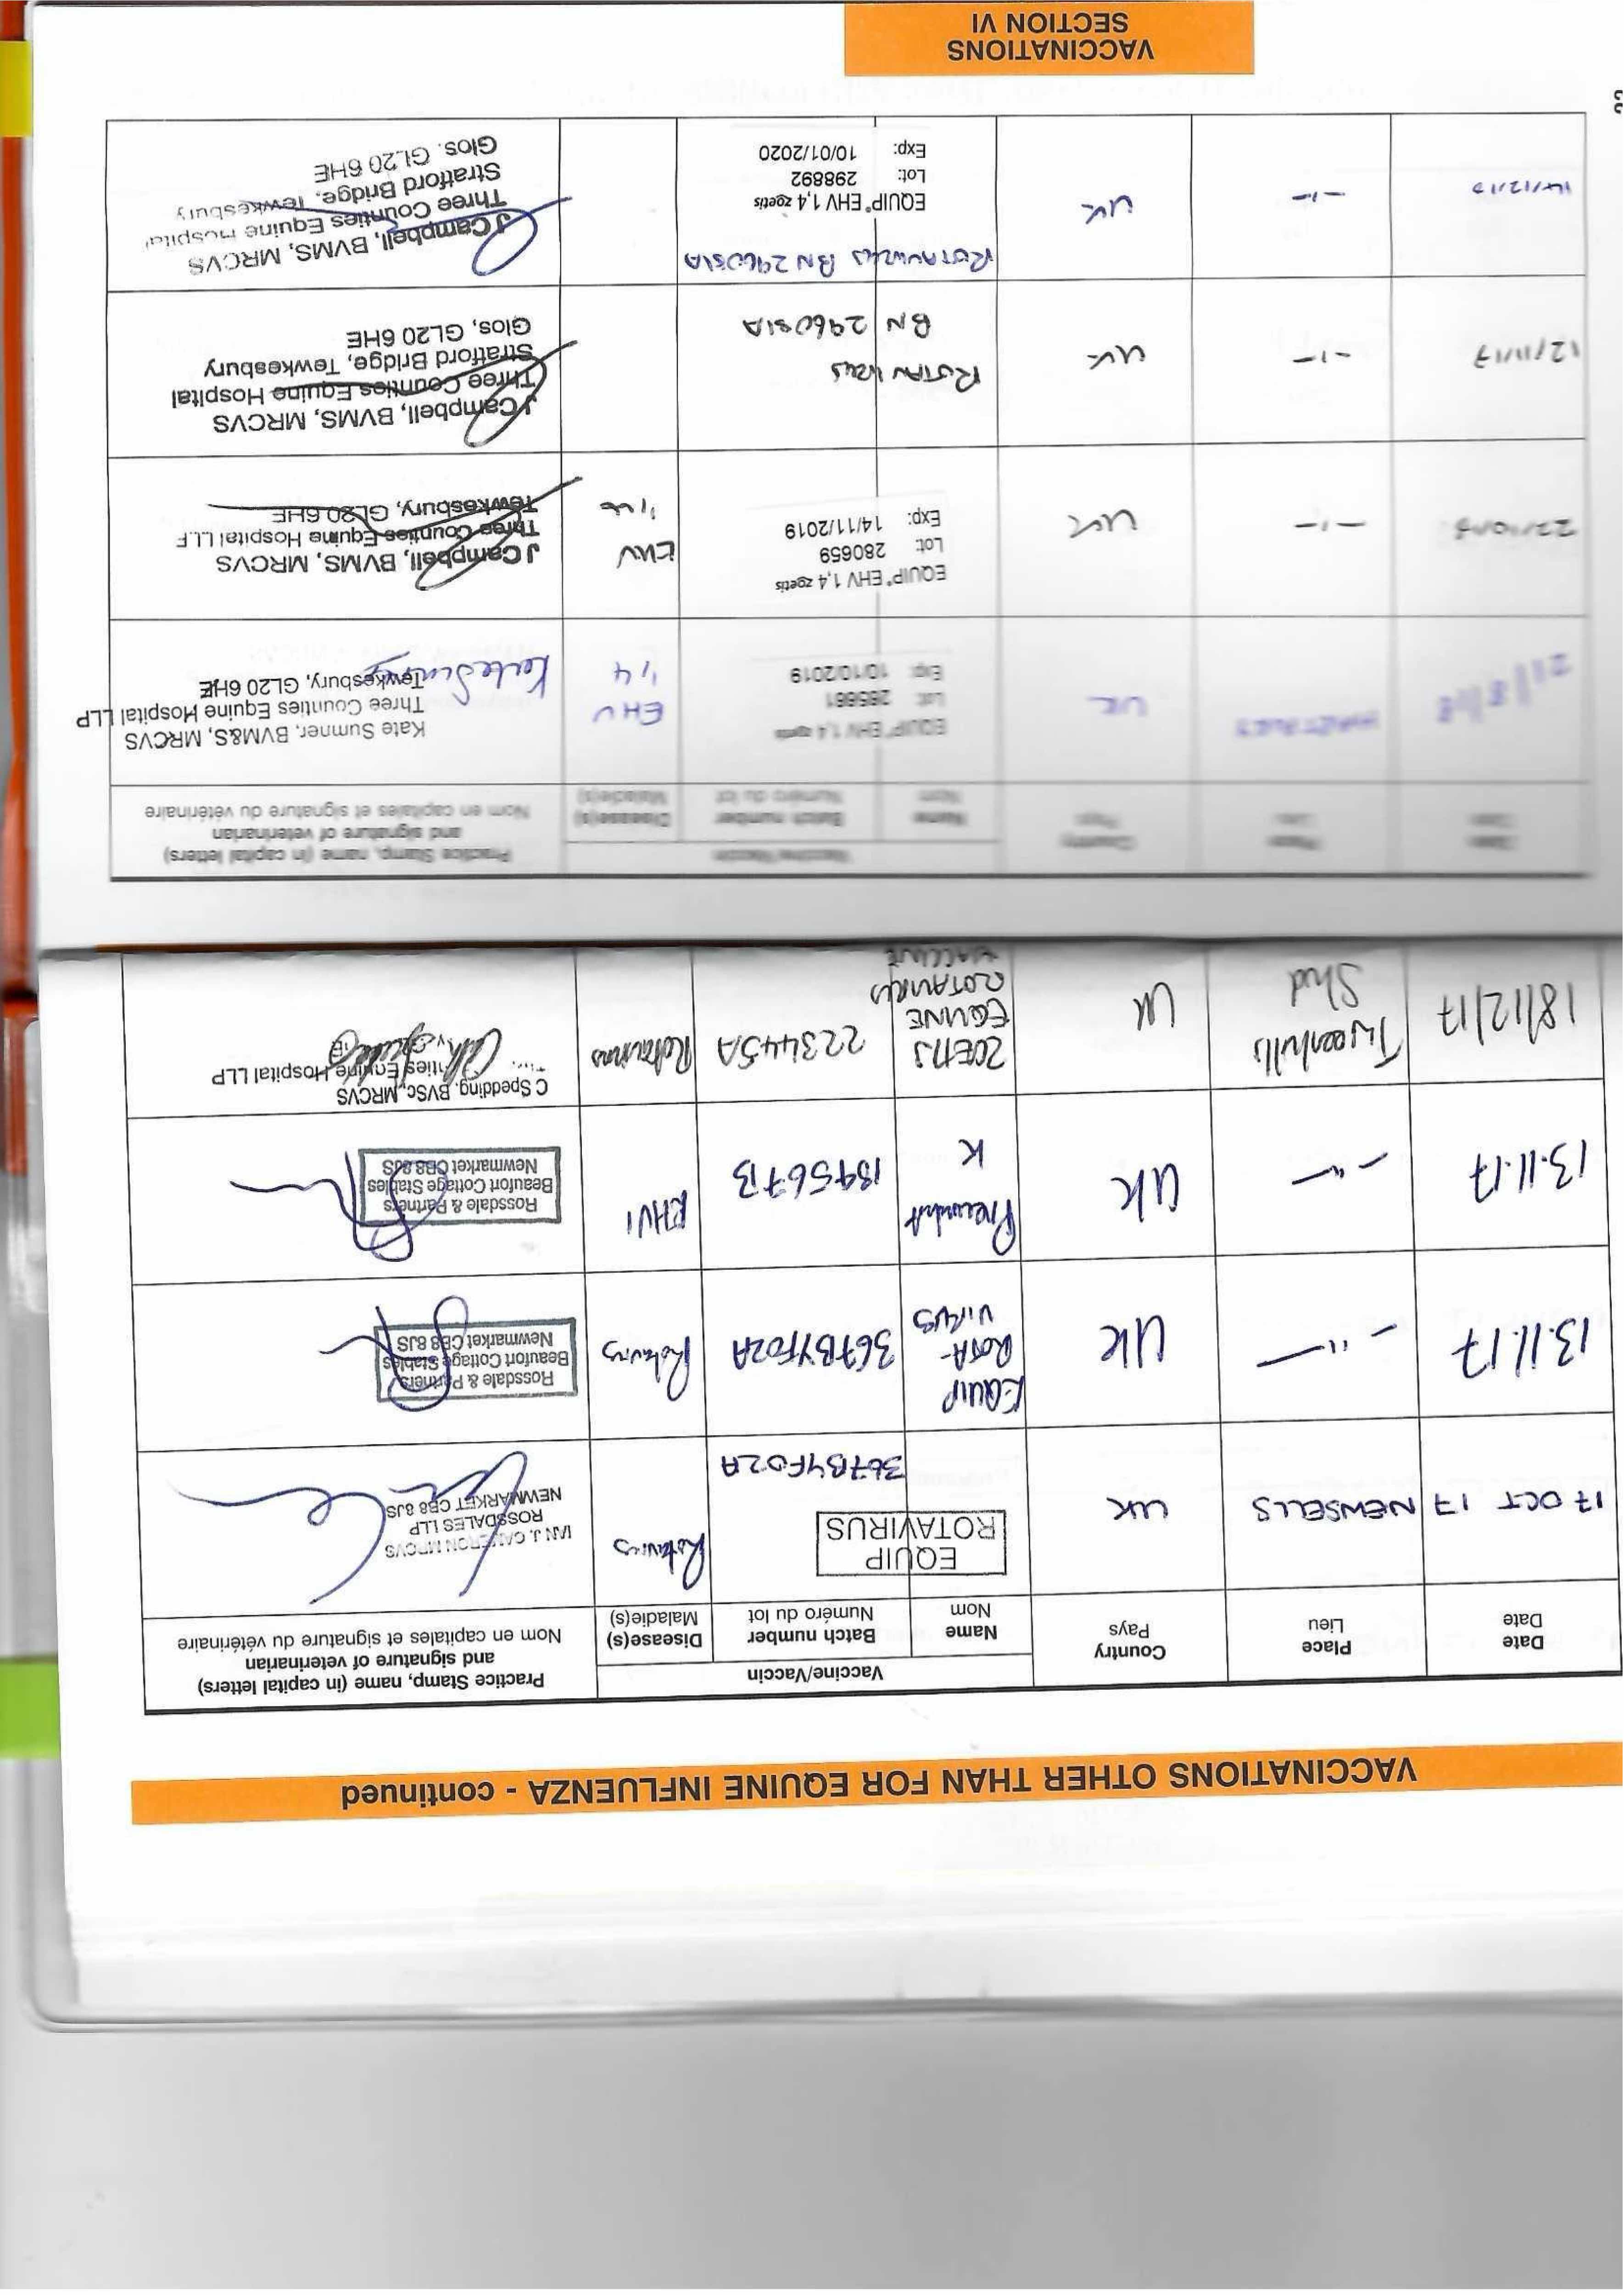 VACCINATIONS OTHER THAN FOR EQUINE INFLUENZA - continued
Date
Date
Place
Lieu
Country
Pays
Vaccine/Vaccin
Name
Nom
Batch number
Numéro du lot
Disease(s)
Maladie(s)
Practice Stamp, name (in capital letters)
and signature of veterinarian
Nom en capitales et signature du vétérinaire
17 OCT 17
NEWSELLS
UK
EQUIP
ROTAVIRUS
367BYF02A
Rotavirus
IAN J. CAMERON MRCVS
ROSSDALES LLP
NEWMARKET CB8 8JS
13.11.17
- " -
UK
EQUIP
ROTA-
VIRUS
367BYF02A
Rotavirus
Rossdale & Partners
Beaufort Cottage Stables
Newmarket CB8 8JS
13.11.17
- " -
UK
K
189567B
EHV1
Rossdale & Partners
Beaufort Cottage Stables
Newmarket CB8 8JS
18/12/17
Tweenhills
Stud
UK
ZOETIS
EQUINE
ROTAVIRUS
VACCINE
223445A
Rotavirus
C Spedding, BVSc, MRCVS
Equine Hospital LLP
Date
Date
Place
Lieu
Country
Pays
Vaccine/Vaccin
Name
Nom
Batch number
Numéro du lot
Disease(s)
Maladie(s)
Practice Stamp, name (in capital letters)
and signature of veterinarian
Nom en capitales et signature du vétérinaire
21/8/18
UK
EQUIP® EHV 1,4 zoetis
Lot: 285661
Exp: 10/10/2019
EHV
1,4
Kate Sumner, BVM&S, MRCVS
Three Counties Equine Hospital LLP
Tewkesbury, GL20 6HE
Kate Sumner
-1-
UK
EQUIP® EHV 1,4 zoetis
Lot: 280659
Exp: 14/11/2019
EHV
J Campbell, BVMS, MRCVS
Three Counties Equine Hospital LLP
Tewkesbury, GL20 6HE
-1-
UK
ROTAVIRUS
BN 296051A
J Campbell, BVMS, MRCVS
Three Counties Equine Hospital
Stratford Bridge, Tewkesbury
Glos, GL20 6HE
-1-
UK
ROTAVIRUS BN 296051A
EQUIP® EHV 1,4 zoetis
Lot: 298892
Exp: 10/01/2020
J Campbell, BVMS, MRCVS
Three Counties Equine Hospital
Stratford Bridge, Tewkesbury
Glos. GL20 6HE
VACCINATIONS
SECTION VI